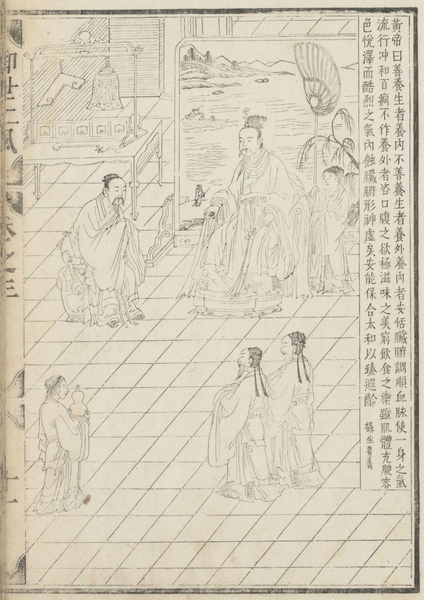 黃帝曰善養生者養內不善養生者養外養內者安恬臟腑調順血脉使一身之氣
流行冲和百病不作養外者恣口腹之欲極滋味之美窮飲食之樂雖肌體充腴容
色悅澤而酷烈之氣內蝕臟腑形神虛矣安能保合太和以臻遐齡 攝生要義
御世仁風
卷之三
十一